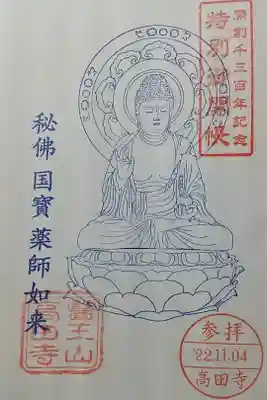 開創千三百年記念
特別御開帳
秘佛 国寶 薬師如来
醫王山
高田寺
参拝
'22.11.04
高田寺